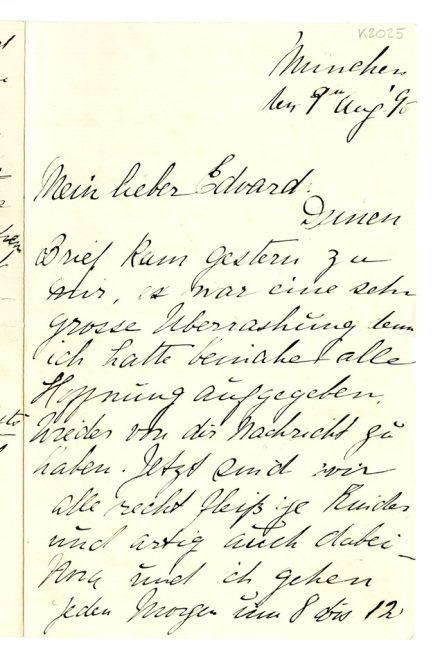 K2025
München
den 9ten Aug' 95
Mein lieber Edvard.
Deinen
Brief kam gestern zu
mir, es war eine sehr
grosse Überrashung denn
ich hatte beinahe alle
Hoffnung aufgegeben,
wieder von dir Nachricht zu
haben. Jetzt sind wir
alle recht fleißige Kinder
und artig auch dabei –
und ich gehen
jeden Morgen um 8 bis 12